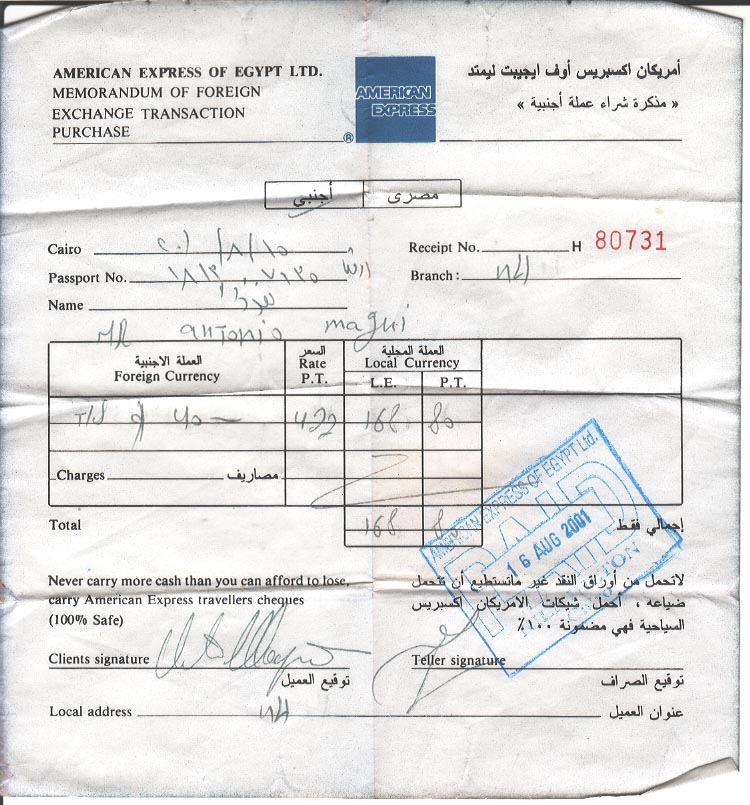 AMERICAN EXPRESS OF EGYPT LTD.
MEMORANDUM OF FOREIGN
EXCHANGE TRANSACTION
PURCHASE
AMERICAN
EXPRESS
®
أمريكان اكسبريس أوف ايجيبت ليمتد
« مذكرة شراء عملة أجنبية »
أجنبي مصرى
Cairo
Receipt No. H 80731
Passport No.
Branch : NH
Name
MR antonio magui
العملة الاجنبية
Foreign Currency
السعر
Rate
P.T.
العملة المحلية
Local Currency
L.E. P.T.
422 168 80
Charges مصاريف
Total 168 80 إجمالي فقط
AMERICAN EXPRESS OF EGYPT Ltd.
PAID
16 AUG 2001
Never carry more cash than you can afford to lose,
carry American Express travellers cheques
(100% Safe)
لاتحمل من أوراق النقد غير ماتستطيع أن تتحمل
ضياعه ، احمل شيكات الامريكان اكسبريس
السياحية فهي مضمونة ١٠٠٪
Clients signature
توقيع العميل
Teller signature
توقيع الصراف
Local address NH عنوان العميل